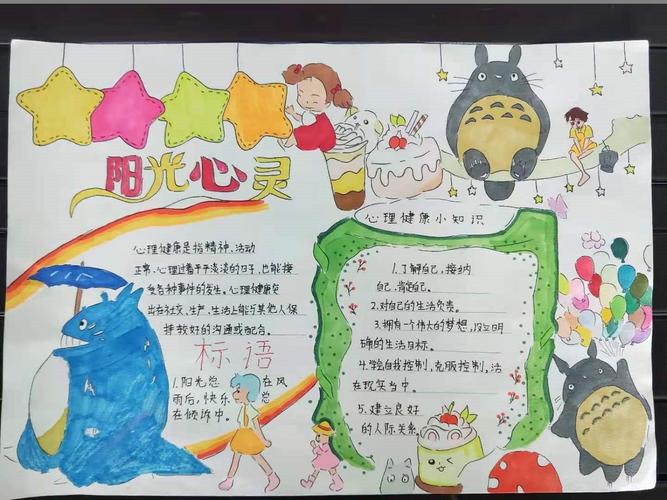 阳光心灵
心理健康是指精神、活动
正常、心理过着平平淡淡的日子,也能接
受各种事件的发生。心理健康突
出在社交、生产、生活上能与其他人保
持较好的沟通或配合。
标语
1.阳光总 在风
雨后,快乐 总
在倾诉中。
心理健康小知识
1.了解自己,接纳
自己,肯定自己。
2.对自己的生活负责。
3.拥有一个伟大的梦想,设立明
确的生活目标。
4.学会自我控制,克服控制,活
在现笑当中。
5.建立良好
的人际关系。